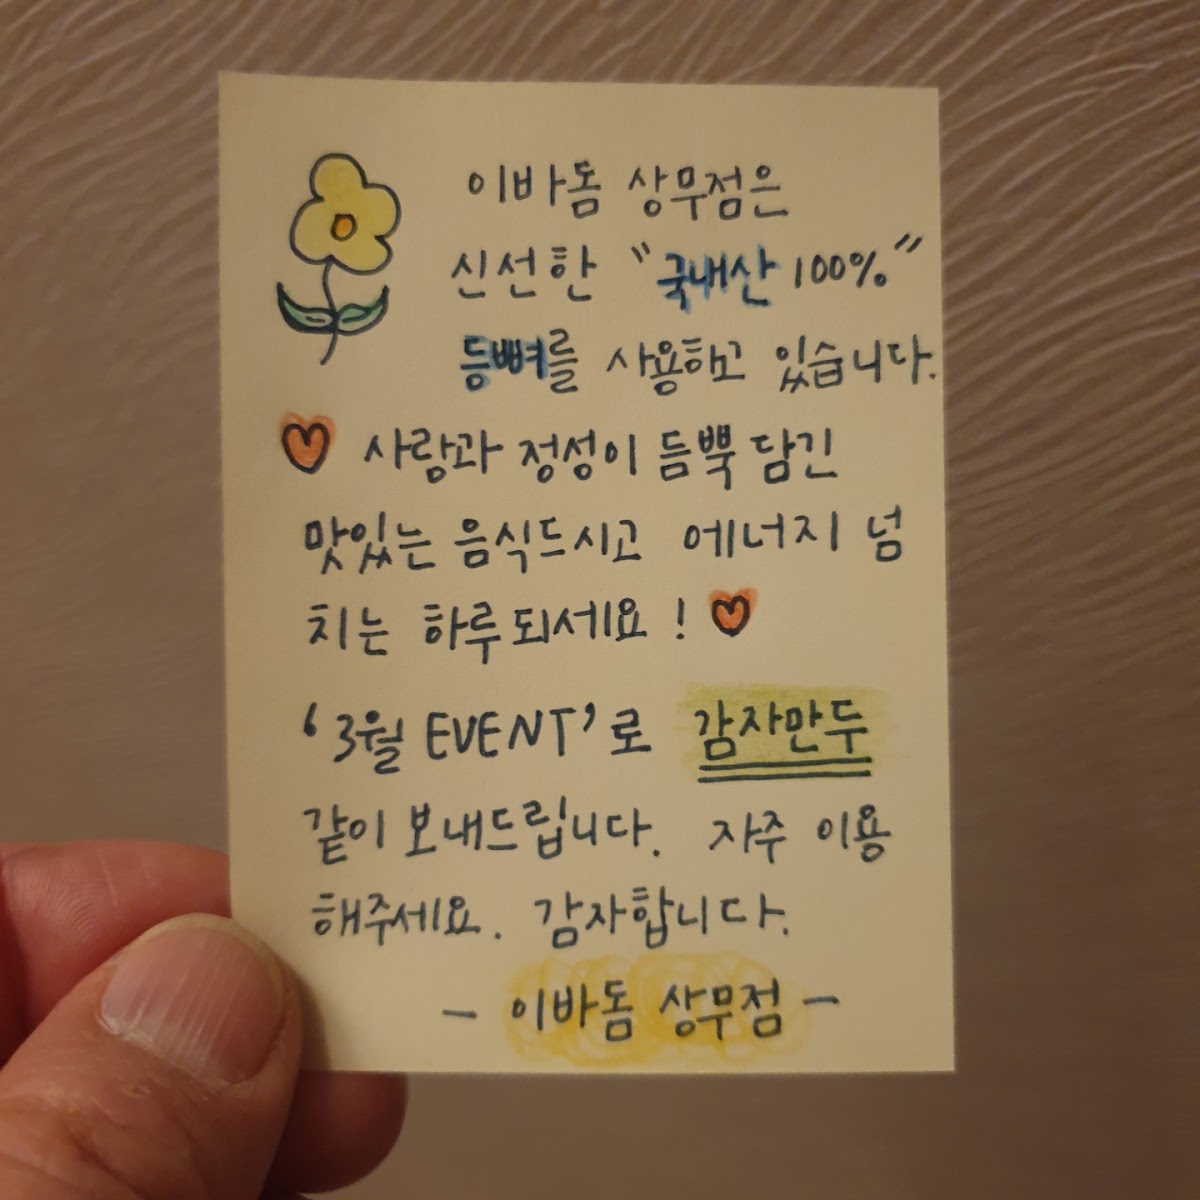 이바돔 상무점은
신선한 "국내산 100%"
등뼈를 사용하고 있습니다.
사랑과 정성이 듬뿍 담긴
맛있는 음식드시고 에너지 넘
치는 하루되세요!
'3월 EVENT'로 감자만두
같이 보내드립니다. 자주 이용
해주세요. 감자합니다.
- 이바돔 상무점 -